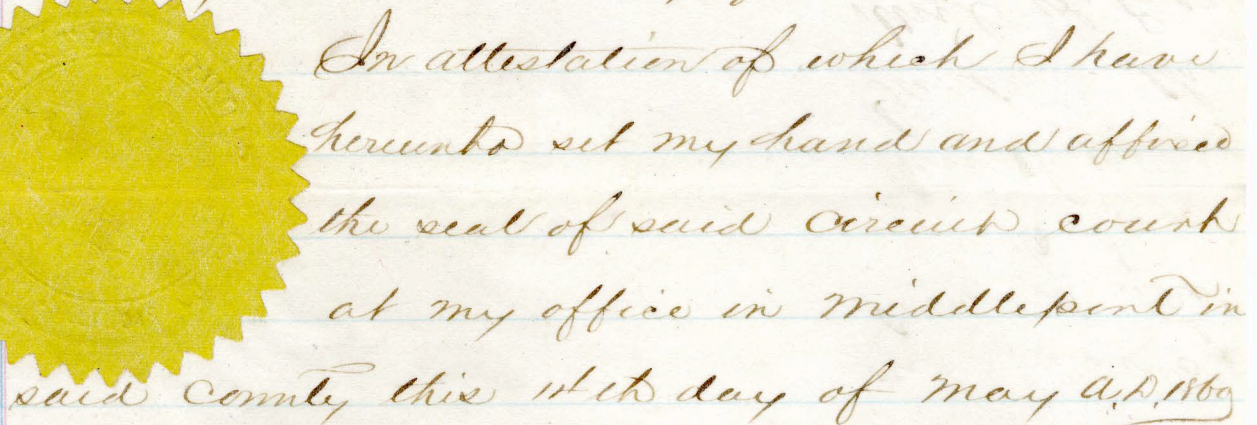 In attestation of which I have
hereunto set my hand and affixed
the seal of said circuit court
at my office in middleport in
said county this 14th day of May A.D. 1869